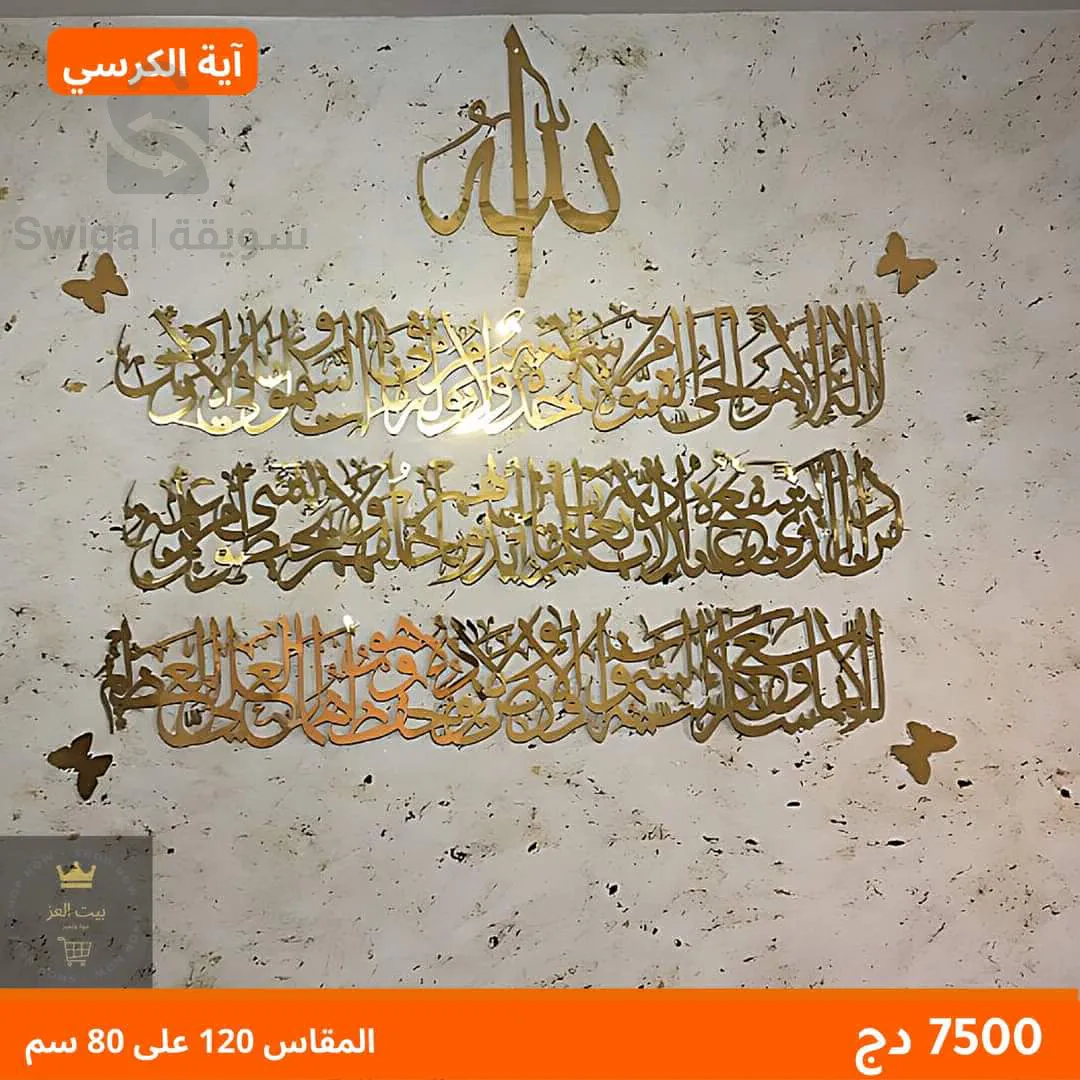 آية الكرسي
الله
Swiqa | سويقة
الله لا إله إلا هو الحي القيوم لا تأخذه سنة ولا نوم له ما في السموات وما في الأرض من
ذا الذي يشفع عنده إلا بإذنه يعلم ما بين أيديهم وما خلفهم ولا يحيطون بشيء من علمه
إلا بما شاء وسع كرسيه السموات والأرض ولا يؤده حفظهما وهو العلي العظيم
بيت العز
7500 دج
المقاس 120 على 80 سم